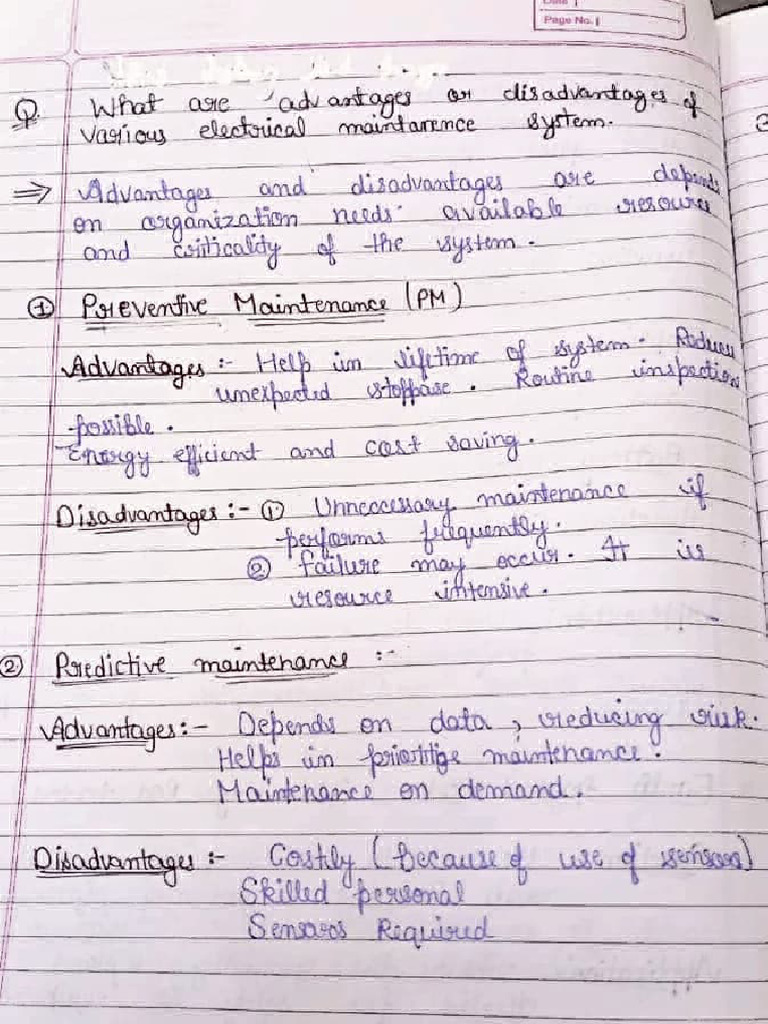 Date
Page No.
Q. What are advantages or disadvantages of
various electrical maintarence system.
⇒ Advantages and disadvantages are depends
on organization needs available resource
and criticality of the system.
① Preventive Maintenance (PM)
Advantages :- Help in lifetime of system. Reduces
unexpected stoppase. Routine inspection
possible.
Energy efficient and cost saving.
Disadvantages :- ① Unneccessary maintenance if
performs frequently.
② failure may occur. It is
resource intensive.
② Predictive maintenance :-
Advantages :- Depends on data, reducing risk.
Helps in priortige maintenance.
Maintenance on demand.
Disadvantages :- Costly (because of use of sensors)
Skilled personal
Sensors Required